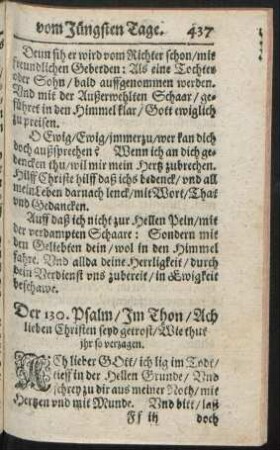 vom Jüngsten Tage. 437
Denn sih er wird vom Richter schon/mit
freundlichen Geberden: Als eine Tochter
oder Sohn/bald auffgenommen werden.
Vnd mit der Außerwehlten Schaar/ge-
führet in den Himmel klar/Gott ewiglich
zu preisen.
O Ewig/Ewig/immerzu/wer kan dich
doch außsprechen? Wenn ich an dich ge-
dencken thu/wil mir mein Hertz zubrechen.
Hilff Christe hilff daß ichs bedenck/vnd all
mein Leben darnach lenck/mit Wort/That
vnd Gedancken.
Auff daß ich nicht zur Hellen Pein/mit
der verdampten Schaare: Sondern mit
den Geliebten dein/wol in den Himmel
fahre. Vnd allda deine Herrligkeit/durch
dein Verdienst vns zubereit/in Ewigkeit
beschawe.
Der 130. Psalm/Im Thon/Ach
lieben Christen seyd getrost/Wie thut
jhr so verzagen.
ACh lieber GOtt/ich lig im Todt/
tieff in der Hellen Grunde/Vnd
schrey zu dir aus meiner Noth/mit
Hertzen vnd mit Munde. Vnd bitt/laß
Ff iij doch